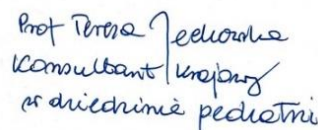 Prof Teresa Jackowska
Konsultant Krajowy
w dziedzinie pediatrii